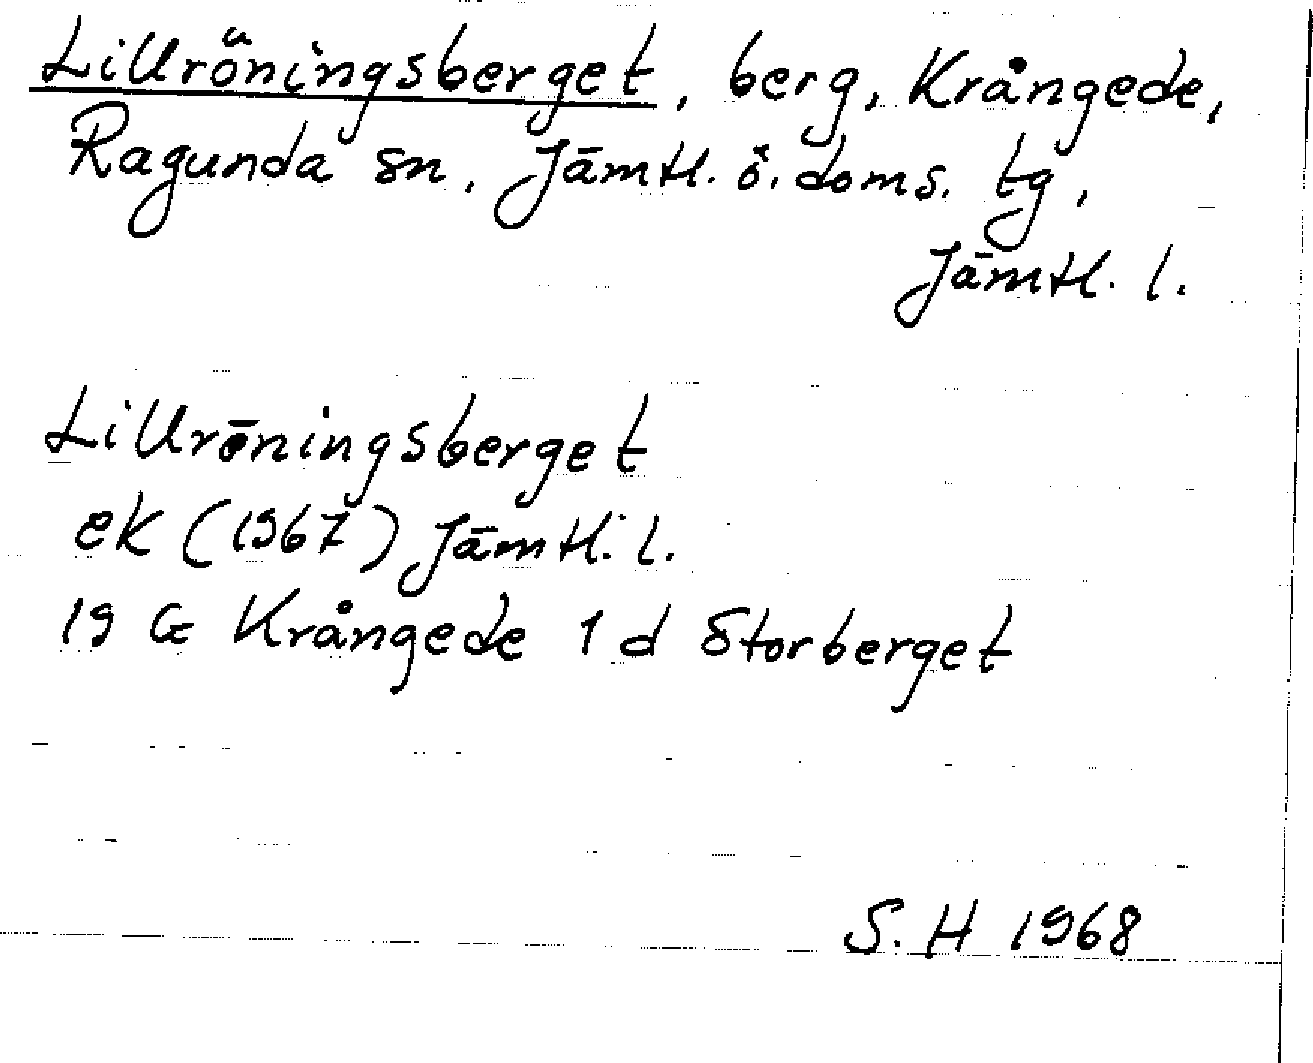 Lillröningsberget, berg, Krångede,
Ragunda sn, Jämtl. ö. doms. tg,
Jämtl. l.
Lillröningsberget
ek (1967) Jämtl. l.
19 G Krångede 1 d Storberget
S. H 1968